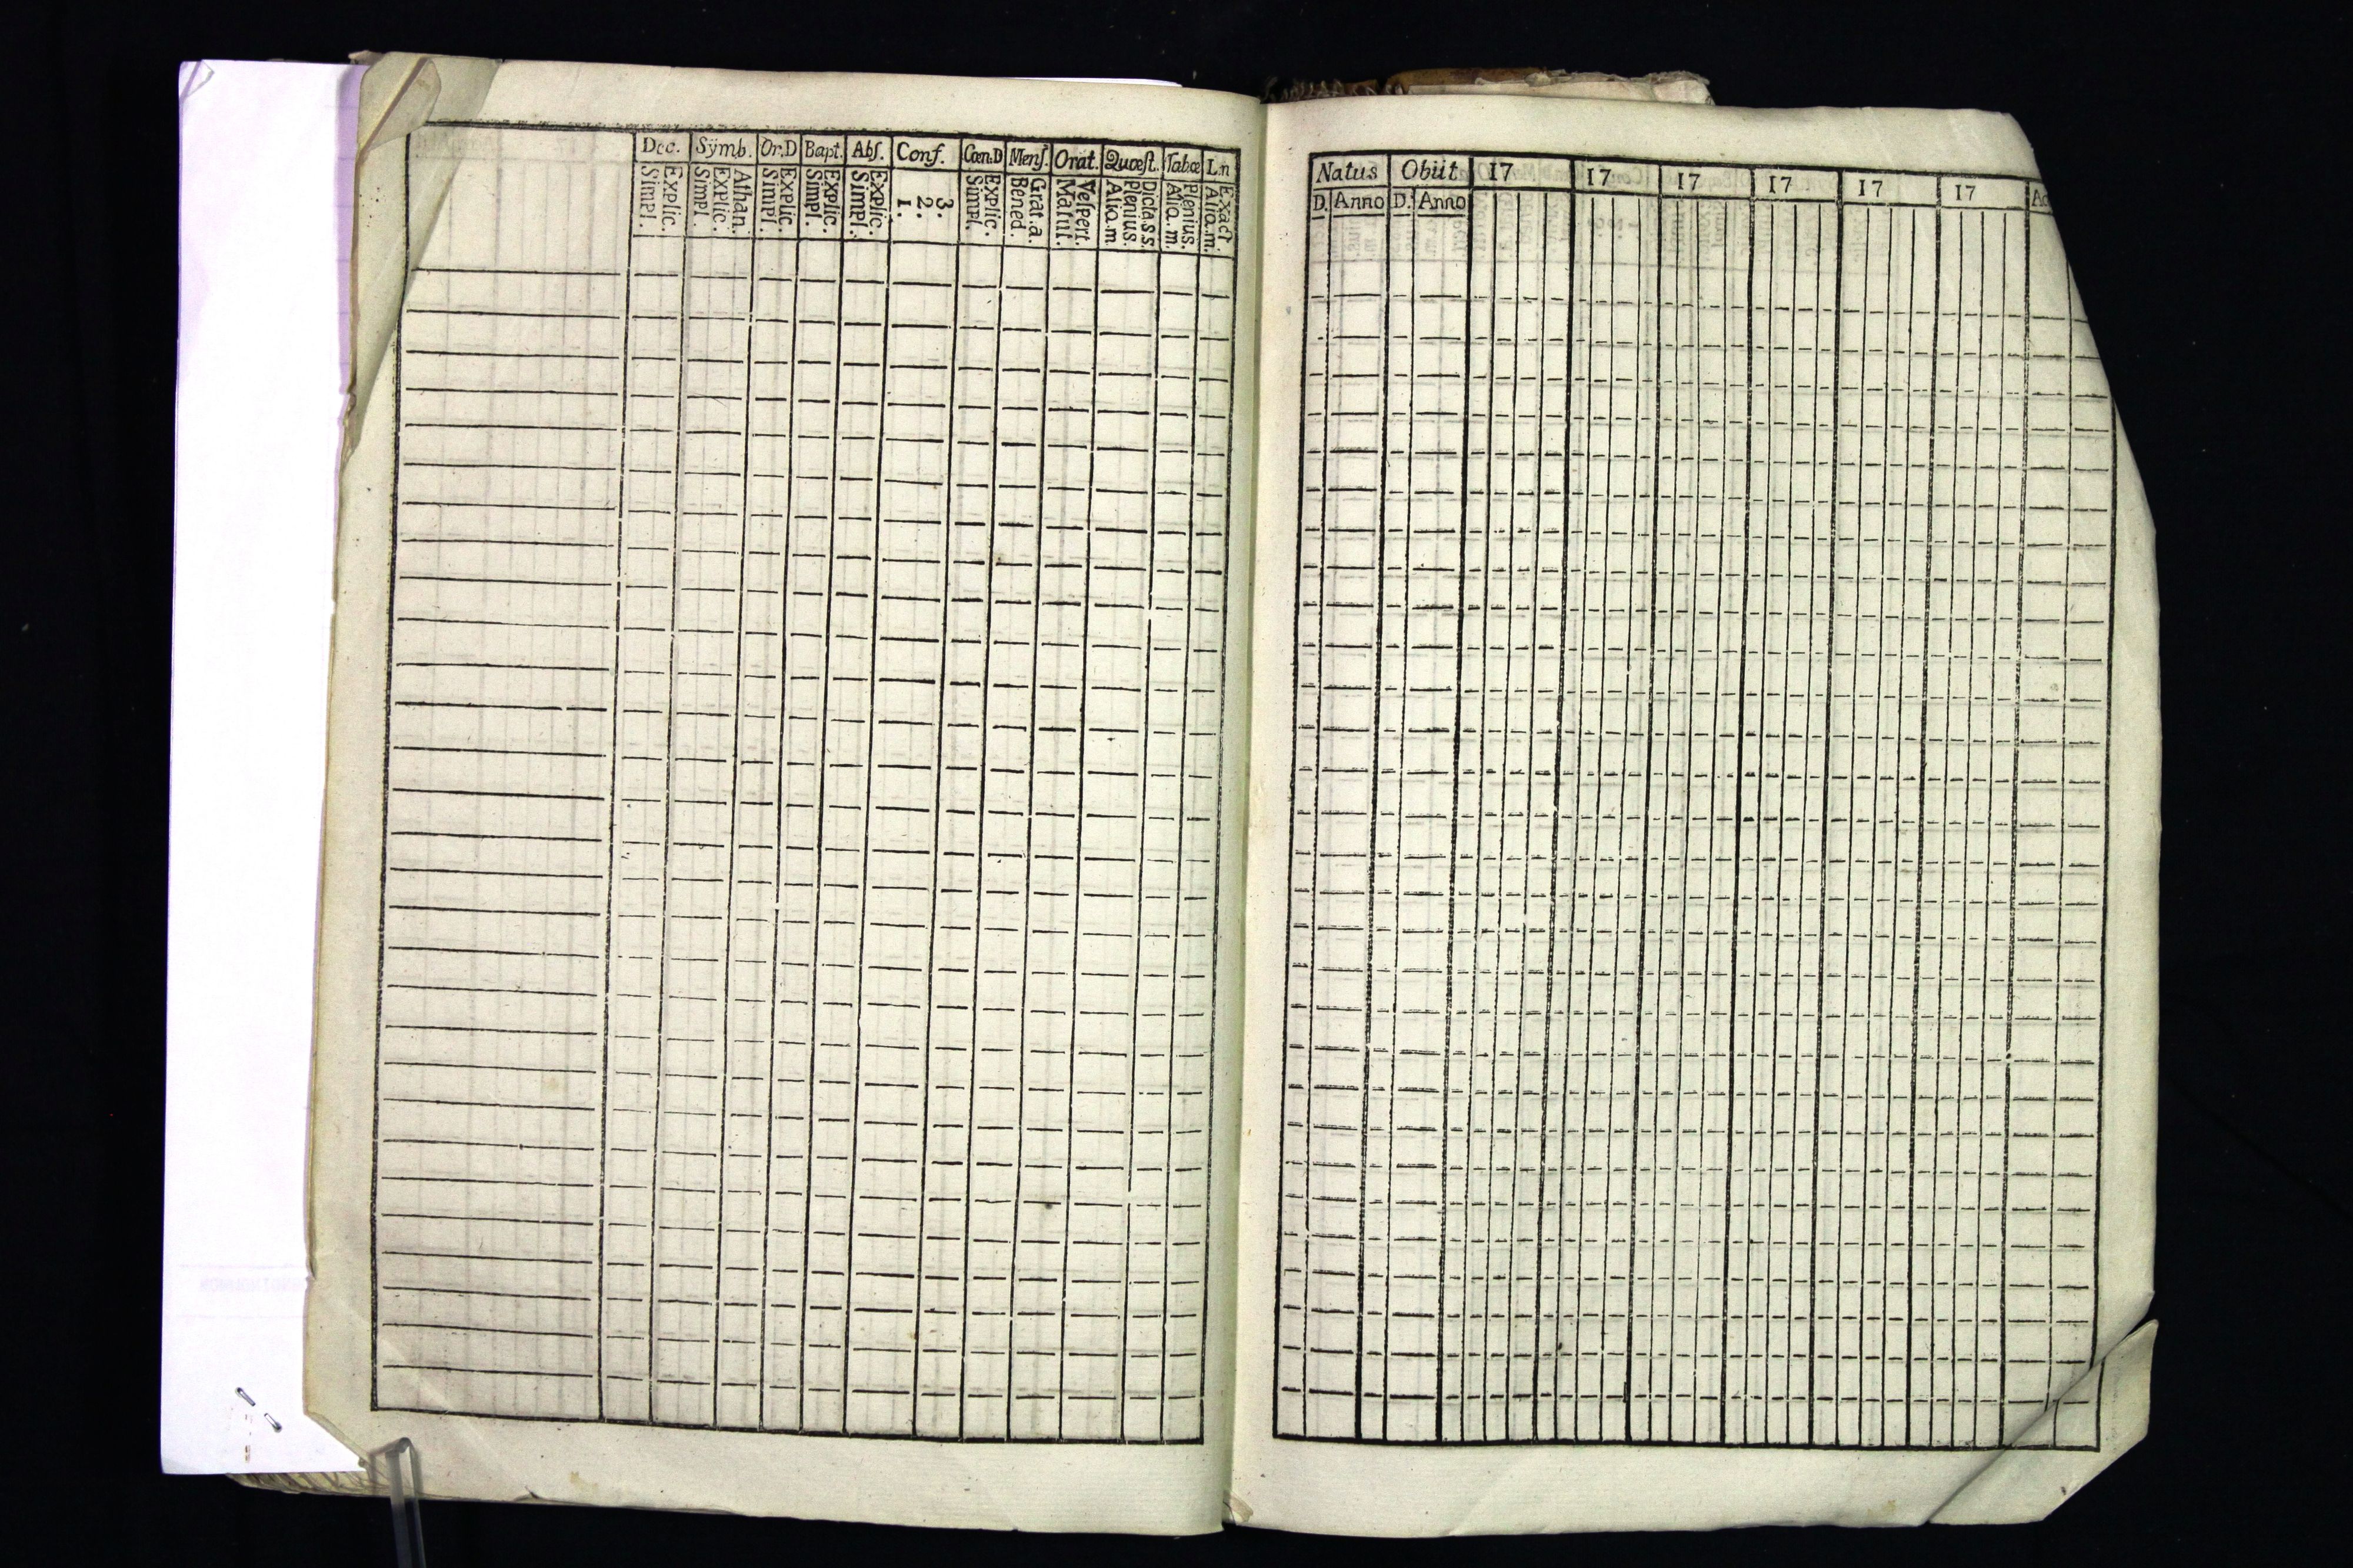 Dec. Sÿmb. Or.D Bapt. Abſ. Conf. Cœn.D Menſ. Orat. Quæſt. Tab.œ L.n
Simpl. Explic. Simpl. Explic. Athan. Simpl. Explic. Simpl. Explic. Simpl. Explic. 1. 2. 3. Simpl. Explic. Bened. Grat.a. Matut. Veſpert. Aliq.m. Plenius. Dicta s.s. Aliq.m. Plenius. Aliq.m. Exact.
Natus Obiit 17 17 17 17 17 17
D. Anno D. Anno